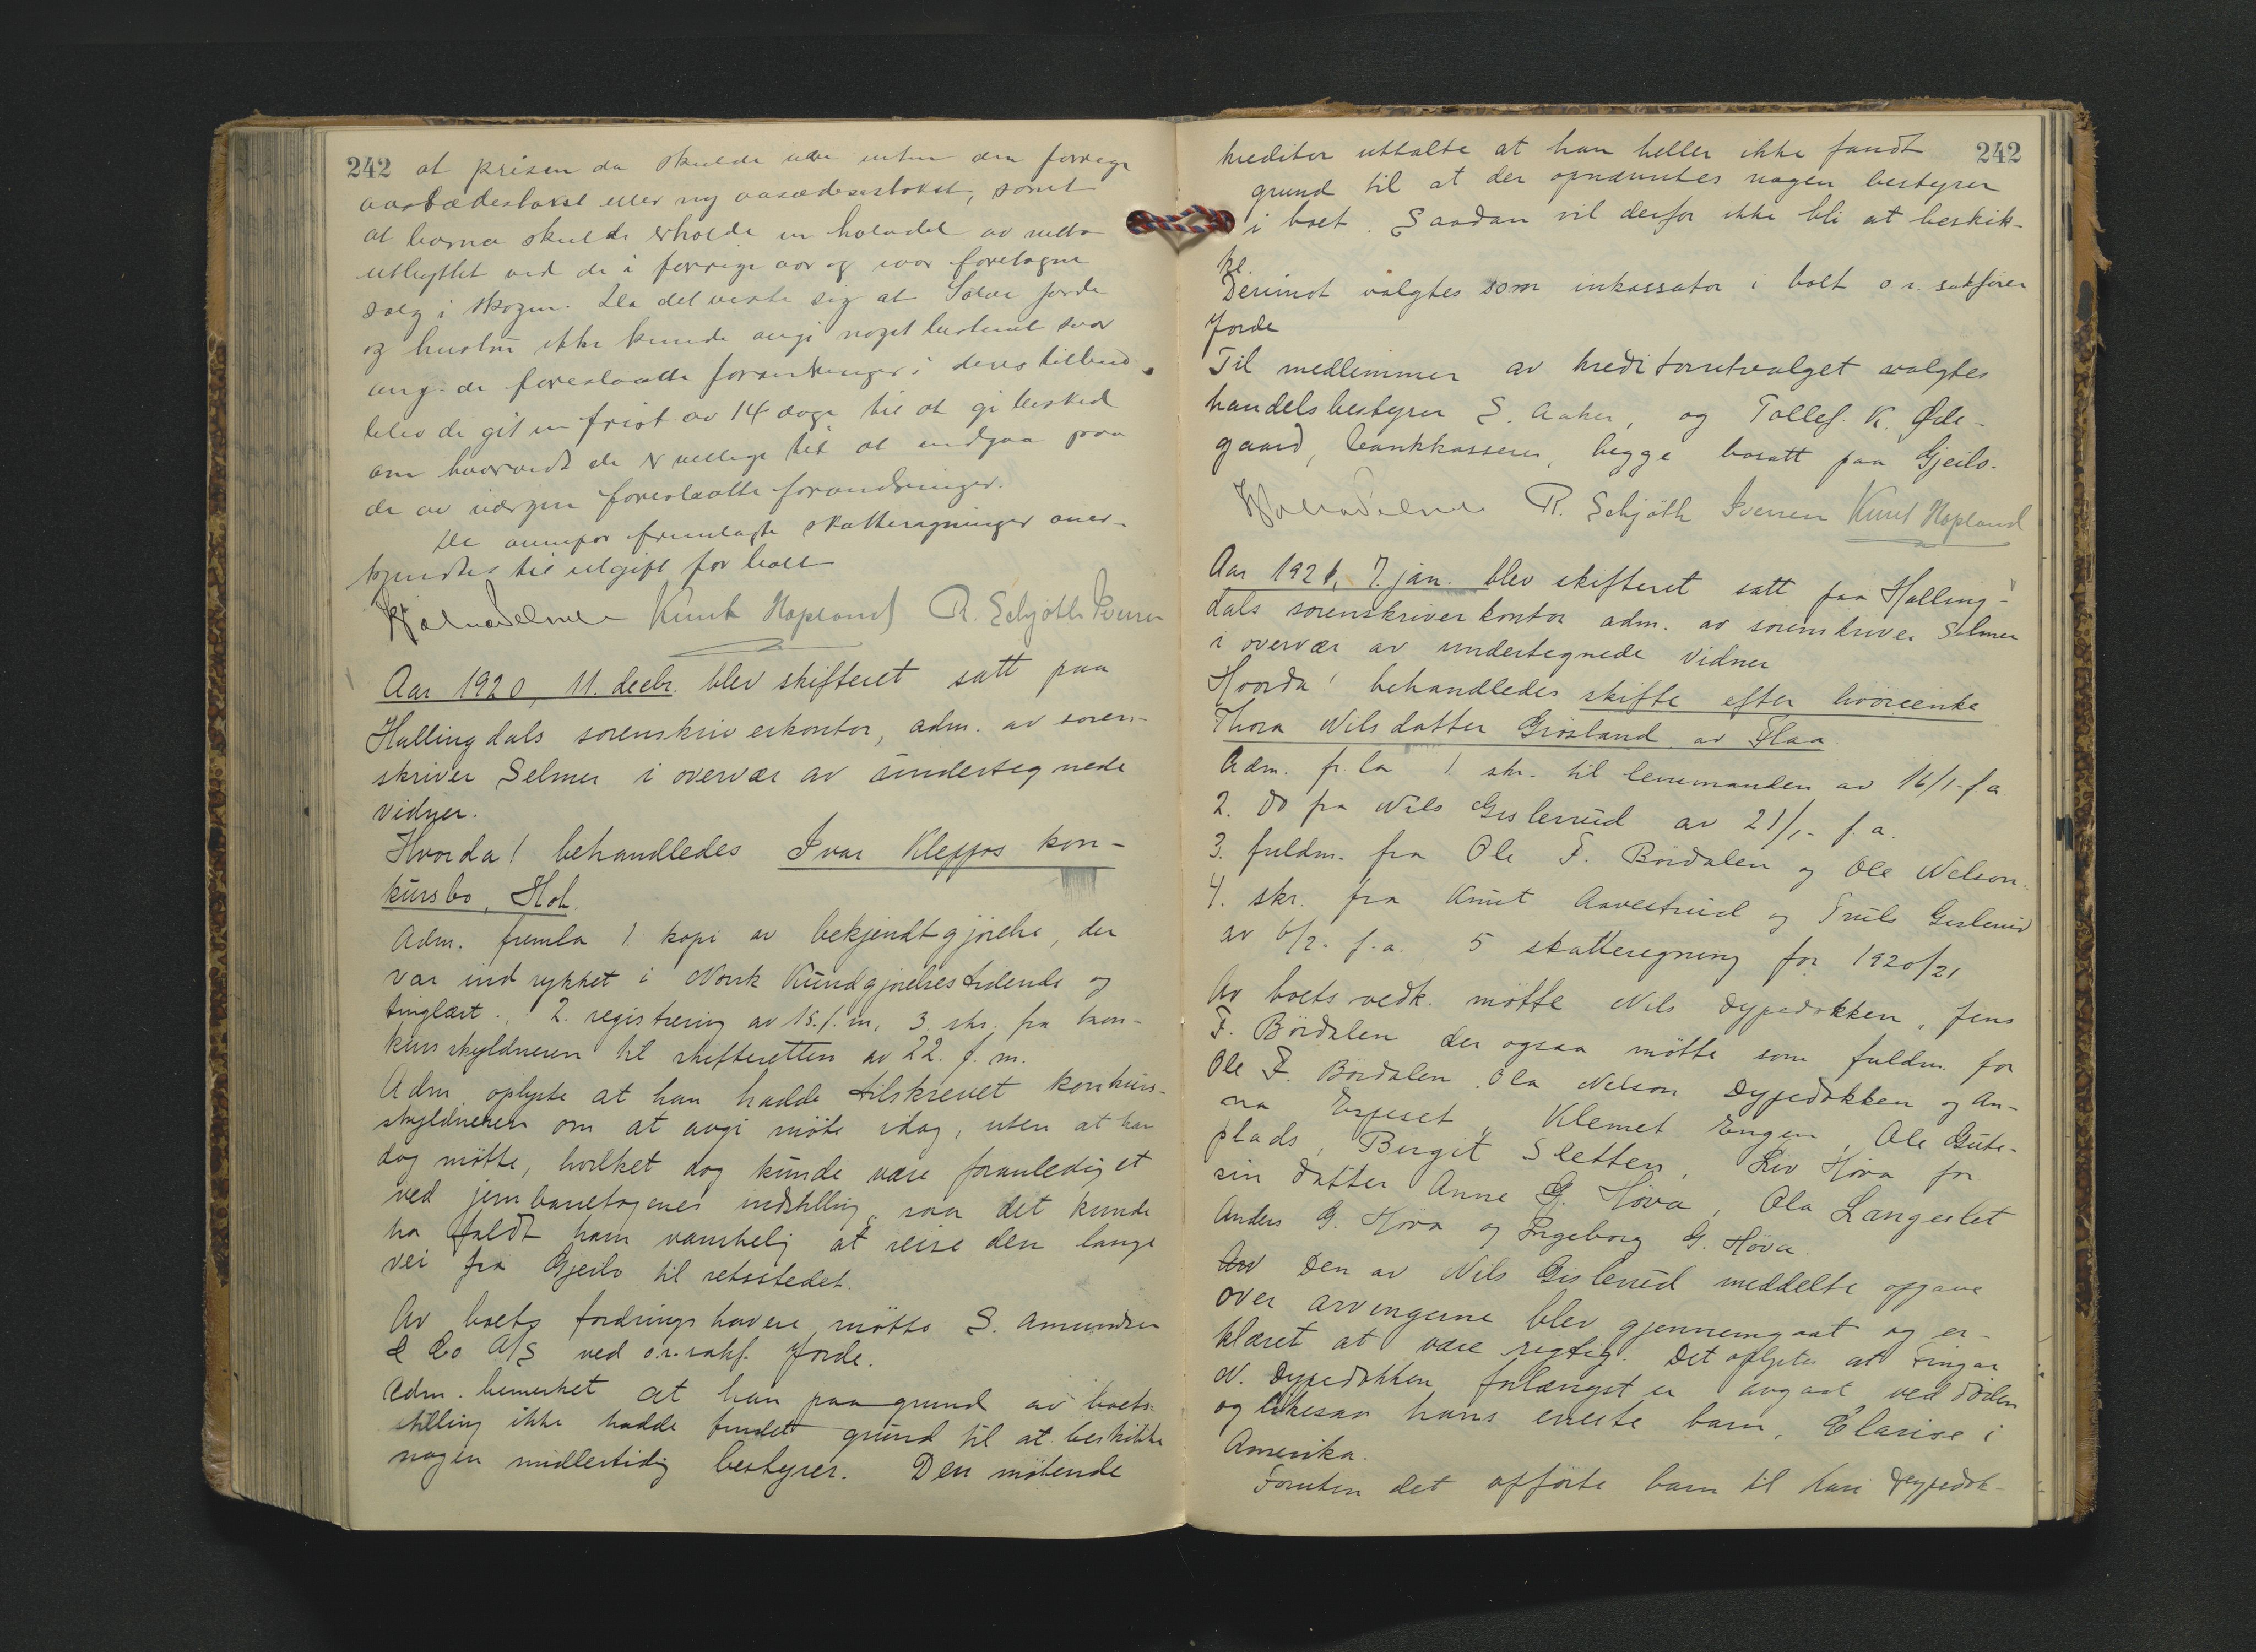 242 at prisen da skulde være uten den forrige
aasædestakst eller ny aasædestakst, samt
at barna skulde erholde en halvdel av netto
utbyttet ved de i forrige aar og iaar foretagne
salg i skogen. Da det viste sig at Sølve Jorde
og hustru ikke kunde angi noget bestemt svar
ang. de foreslaatte forandringer i deres tilbud
blev de git en frist av 14 dage til at gi besked
om hvorvidt de er villige til at indgaa paa
de av vergen foreslaatte forandringer.
De ovenfor fremlagte skatteregninger aner-
kjendtes til utgift for boet
Knut Hopland R. Schjöth Iversen
Aar 1920, 11. decbr. blev skifteret satt paa
Hallingdals sorenskriverkontor, adm. av soren-
skriver Selmer i overvær av undertegnede
vidner.
Hvorda! behandledes Ivar Kleppos kon-
kursbo, Hol.
Adm. fremla 1. kopi av bekjendtgjörelse, der
var indrykket i Norsk Kundgjørelsestidende og
tinglæst., 2. registrering av 15. f.m., 3. skr. fra kon-
kursskyldneren til skifteretten av 22. f.m.
Adm. oplyste at han hadde tilskrevet konkurs-
skyldneren om at avgi möte idag, uten at han
dog mötte, hvilket dog kunde være foranlediget
ved jernbanetogenes indstilling, saa det kunde
ha faldt ham vanskelig at reise den lange
vei fra Gjeilo til retsstedet.
Av boets fordringshavere mötte S. Amundsen
& Co A/S ved o.r.sakf. Jorde.
Adm. bemerket at han paa grund av boets
stilling ikke hadde fundet grund til at beskikke
nogen midlertidig bestyrer. Den mötende
kreditor uttalte at han heller ikke fandt 242
grund til at der opnævntes nogen bestyrer
i boet. Saadan vil derfor ikke bli at beskik-
ke.
Derimot valgtes som inkassator i boet o.r. sakförer
Jorde
Til medlemmer av kreditorutvalget valgtes
handelsbestyrer S. Aaker, og Tollef. K. Öde-
gaard, bankkasserer, begge bosatt paa Gjeilo.
R. Schjöth Iversen Knut Hopland
Aar 1921, 7. jan. blev skifteret satt paa Halling-
dals sorenskriverkontor adm. av sorenskriver Selmer
i overvær av undertegnede vidner
Hvorda! behandledes skifte efter
Thora Nilsdatter Grösland av Flaa.
Adm. fr.la 1 skr. til lensmanden av 16/1- f.a.
2. do fra Nils Gislerud av 21/1- f.a.
3. fuldm. fra Ole F. Bördalen og Ole Nelson.
4. skr. fra Knut Aavestrud og Truls Gislerud
av 6/2- f.a. 5 skatteregning for 1920/21
Av boets vedk. mötte Nils Dypedokken, Jens
F. Bördalen der ogsaa mötte som fuldm. for
Ole F. Bördalen. Ola Nelson Dypedokken og An-
na Espeset, Klemet Engen, Ole Gute-
plads, Birgit Sletten, Liv Höva for
sin datter Anne G. Höva, Ola Langeslet
Anders G. Höva og Ingeborg G. Höva.
Av Den av Nils Gislerud meddelte opgave
over arvingerne blev gjennemgaat og er-
klæret at være rigtig. Det oplystes at Fingar
N. Dypedokken forlængst er avgaat ved döden
og likesaa hans eneste barn, Clarise i
Amerika.
Foruten det opförte barn til Kari Dypedok-